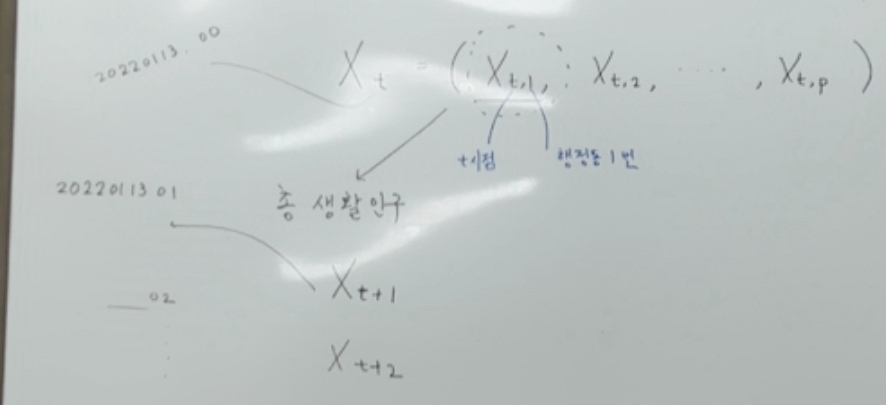 20220113.00
X_t = ( X_t,1, X_t,2, ..... , X_t,p )
t시점 행정동 1번
20220113 01
총 생활인구
X_t+1
__02
X_t+2